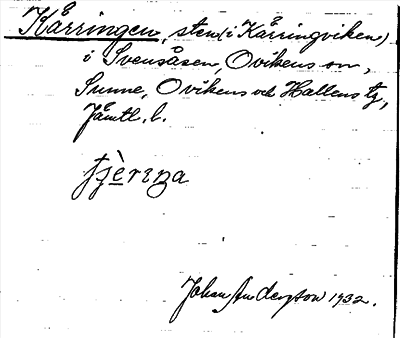 Kärringen, sten (i Kärringviken)
i Svensåsen, Ovikens sn,
Sunne, Ovikens och Hallens tg,
Jämtl. l.
Johan Anderzson 1932.